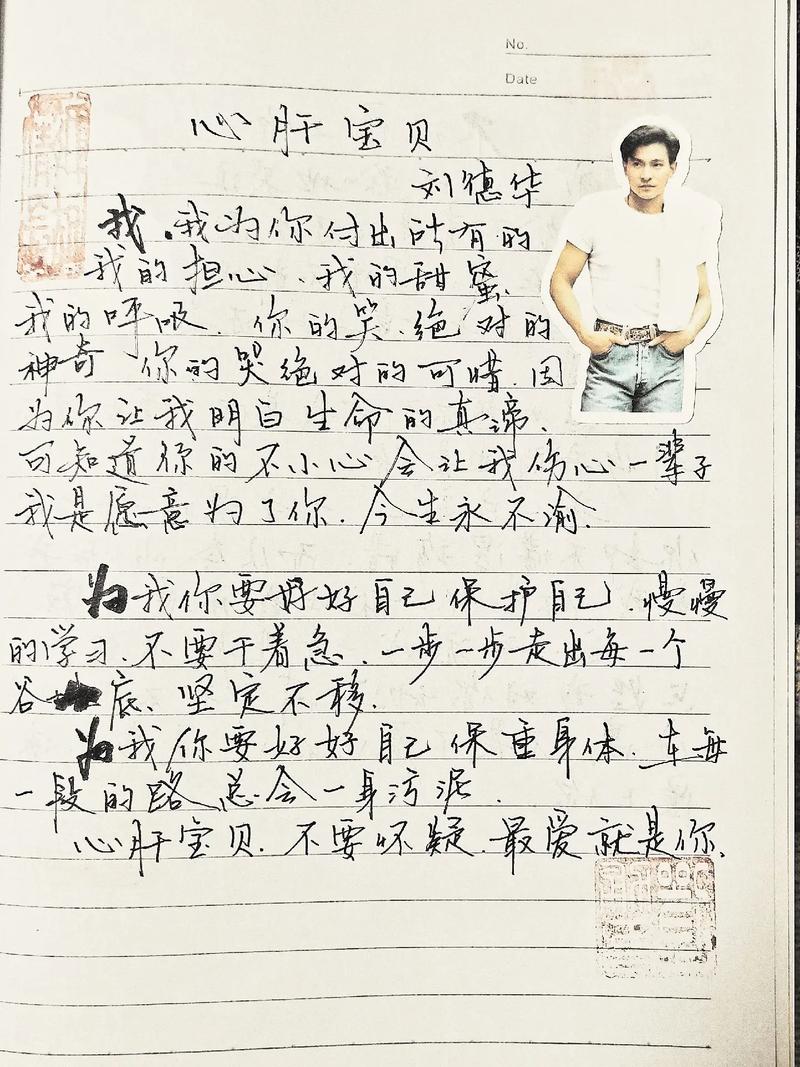 No.
Date
心肝宝贝
刘德华
我.我为你付出所有的
我的担心.我的甜蜜.
我的呼吸.你的笑.绝对的
神奇 你的哭绝对的可惜.因
为你让我明白生命的真谛.
可知道你的不小心会让我伤心一辈子
我是愿意为了你.今生永不渝.
为我你要好好自己保护自己.慢慢
的学习.不要干着急.一步一步走出每一个
谷底.坚定不移.
为我你要好好自己保重身体.车每
一段的路总会一身污泥.
心肝宝贝.不要怀疑.最爱就是你.